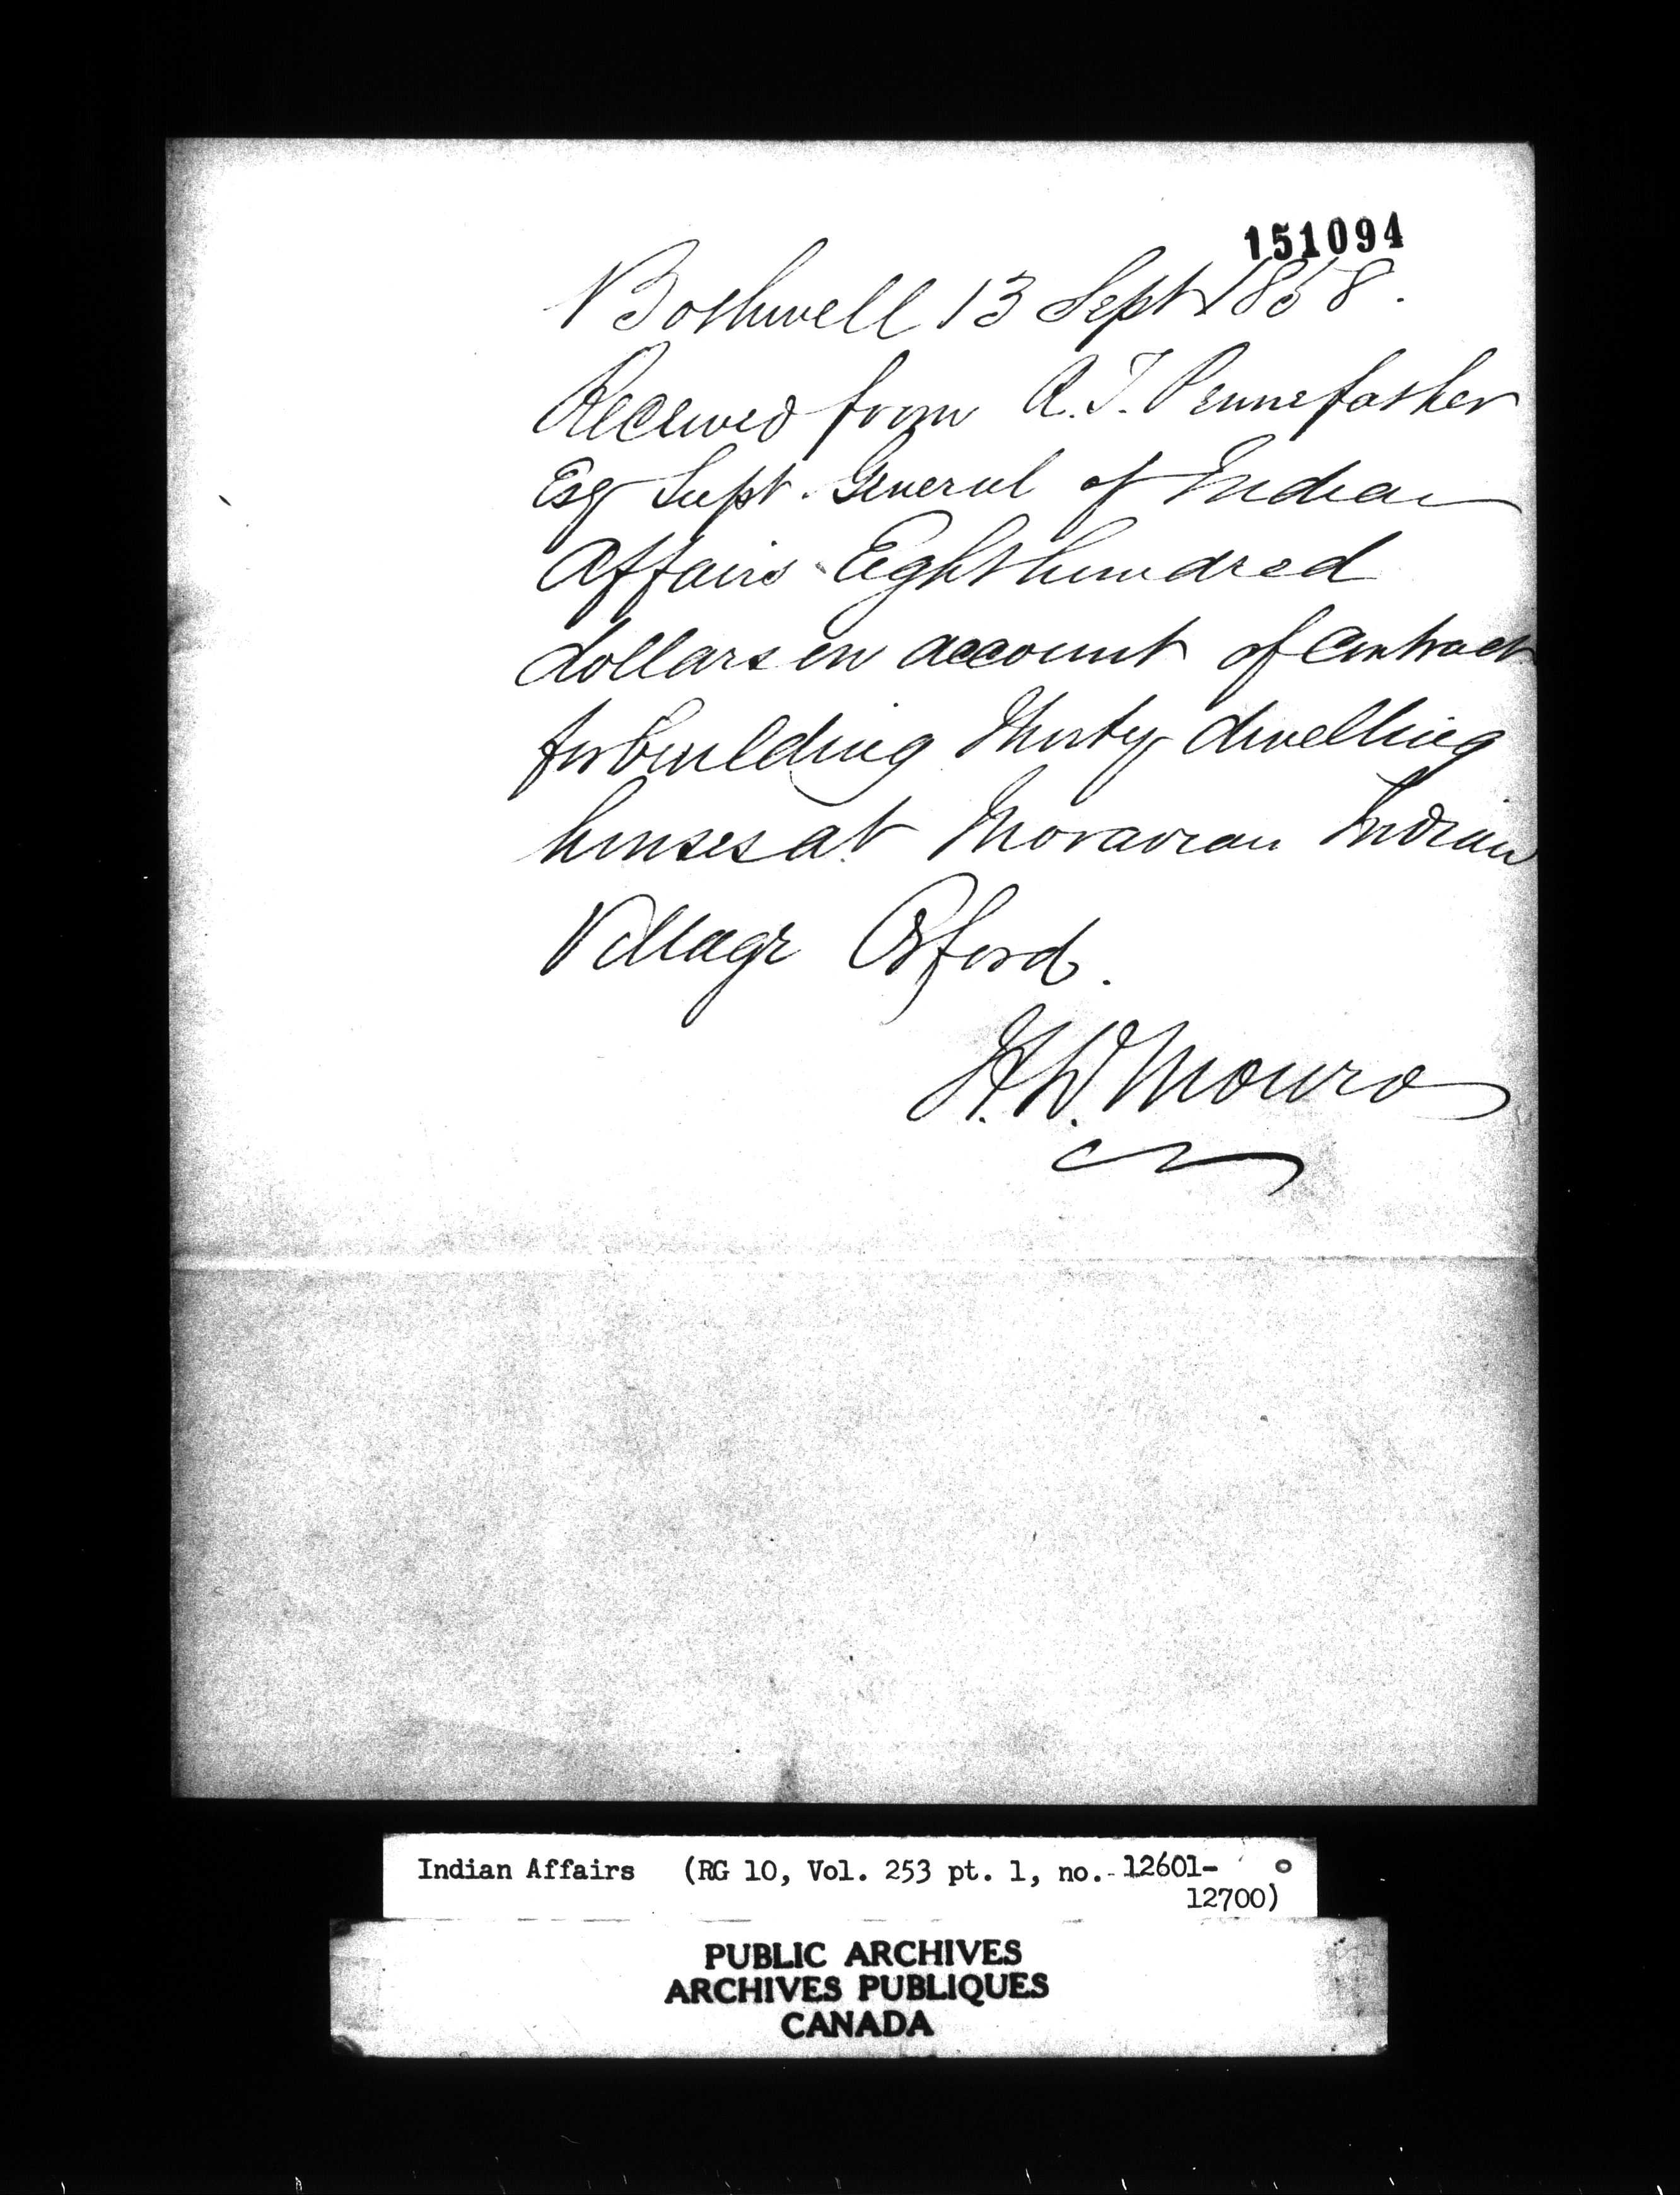 151094
Bothwell 13 Sept 1858.
Received from R. T. Pennefather
Esq Supt. General of Indian
Affairs Eight hundred
dollars on account of Contract
for building Thirty dwelling
houses at Moravian Indian
Village Orford.
H. W. Mouro
Indian Affairs (RG 10, Vol. 253 pt. 1, no. 12601-
12700)
PUBLIC ARCHIVES
ARCHIVES PUBLIQUES
CANADA